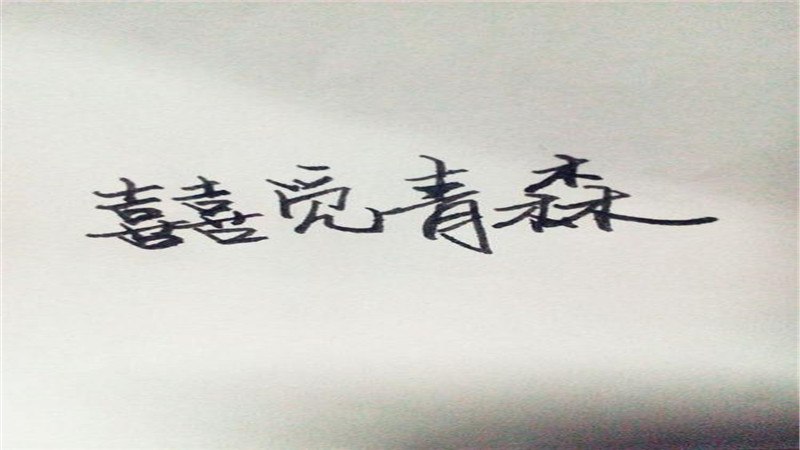 囍觅青森